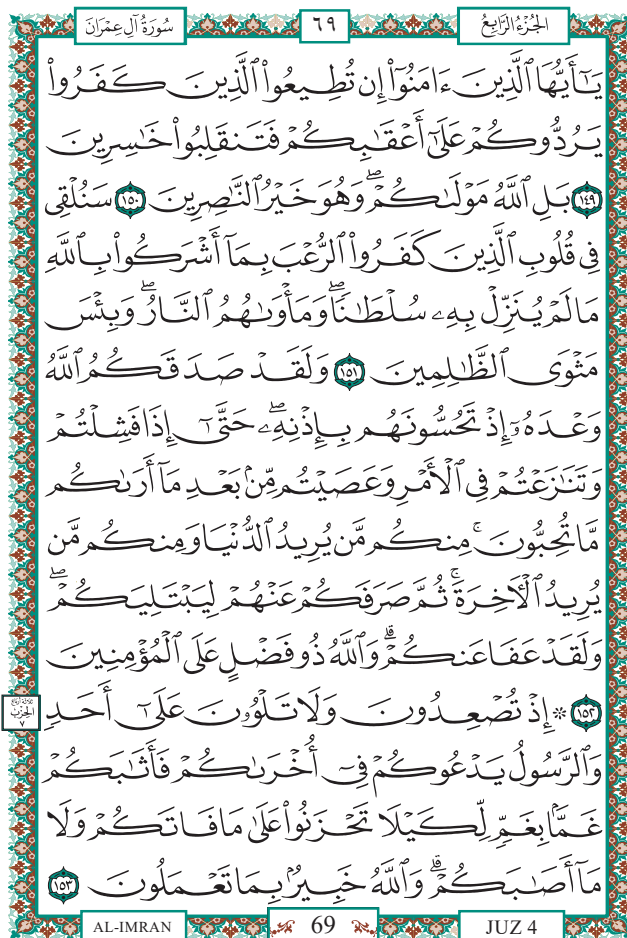 سُورَةُ آلِ عِمْرَانَ ٦٩ الجُزْءُ الرَّابِعُ
يَـٰٓأَيُّهَا ٱلَّذِينَ ءَامَنُوٓاْ إِن تُطِيعُواْ ٱلَّذِينَ كَفَرُواْ
يَرُدُّوكُمْ عَلَىٰٓ أَعْقَـٰبِكُمْ فَتَنقَلِبُواْ خَـٰسِرِينَ
١٤٩ بَلِ ٱللَّهُ مَوْلَىٰكُمْۖ وَهُوَ خَيْرُ ٱلنَّـٰصِرِينَ ١٥٠ سَنُلْقِى
فِى قُلُوبِ ٱلَّذِينَ كَفَرُواْ ٱلرُّعْبَ بِمَآ أَشْرَكُواْ بِٱللَّهِ
مَا لَمْ يُنَزِّلْ بِهِۦ سُلْطَـٰنًاۖ وَمَأْوَىٰهُمُ ٱلنَّارُۖ وَبِئْسَ
مَثْوَى ٱلظَّـٰلِمِينَ ١٥١ وَلَقَدْ صَدَقَكُمُ ٱللَّهُ
وَعْدَهُۥٓ إِذْ تَحُسُّونَهُم بِإِذْنِهِۦۖ حَتَّىٰٓ إِذَا فَشِلْتُمْ
وَتَنَـٰزَعْتُمْ فِى ٱلْأَمْرِ وَعَصَيْتُم مِّنۢ بَعْدِ مَآ أَرَىٰكُم
مَّا تُحِبُّونَۚ مِنكُم مَّن يُرِيدُ ٱلدُّنْيَا وَمِنكُم مَّن
يُرِيدُ ٱلْـَٔاخِرَةَۚ ثُمَّ صَرَفَكُمْ عَنْهُمْ لِيَبْتَلِيَكُمْۖ
وَلَقَدْ عَفَا عَنكُمْۗ وَٱللَّهُ ذُو فَضْلٍ عَلَى ٱلْمُؤْمِنِينَ
١٥٢ ۞ إِذْ تُصْعِدُونَ وَلَا تَلْوُۥنَ عَلَىٰٓ أَحَدٍ
وَٱلرَّسُولُ يَدْعُوكُمْ فِىٓ أُخْرَىٰكُمْ فَأَثَـٰبَكُمْ
غَمَّۢا بِغَمٍّ لِّكَيْلَا تَحْزَنُواْ عَلَىٰ مَا فَاتَكُمْ وَلَا
مَآ أَصَـٰبَكُمْۗ وَٱللَّهُ خَبِيرُۢ بِمَا تَعْمَلُونَ ١٥٣
ثلاثة أرباع
الحزب
٧
AL-IMRAN 69 JUZ 4